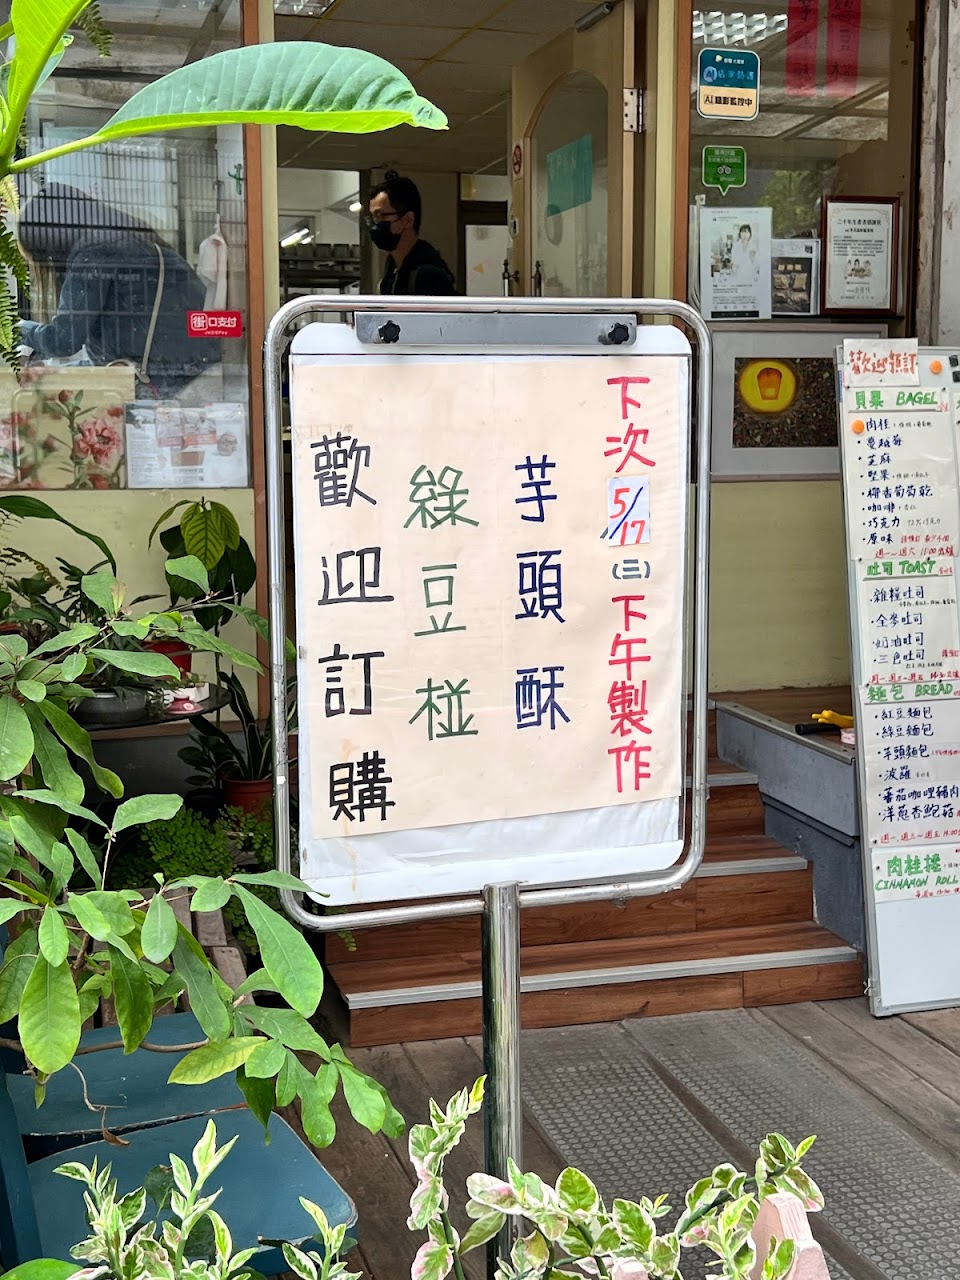 下次5/17(三)下午製作
芋頭酥
綠豆椪
歡迎訂購
街口支付
AI店家防護
AI錄影監控中
歡迎預訂
貝果 BAGEL
・肉桂
・蔓越莓
・芝麻
・堅果
・椰香葡萄乾
・咖啡
・巧克力
・原味
週一~週六 11:00出爐
吐司 TOAST
・雜糧吐司
・全麥吐司
・奶油吐司
・三色吐司
麵包 BREAD
・紅豆麵包
・綠豆麵包
・芋頭麵包
・波羅
・蕃茄咖哩豬肉
・洋蔥杏鮑菇
肉桂捲
CINNAMON ROLL